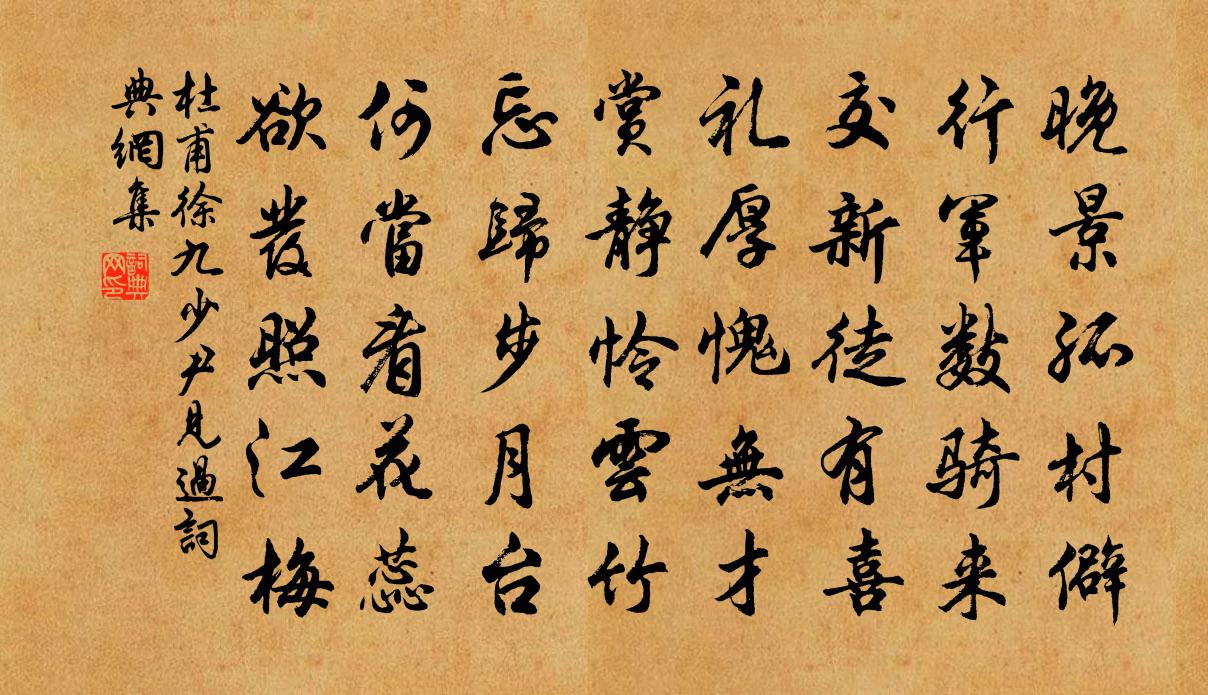 晚景孤村僻
行軍數騎来
交新徒有喜
礼厚愧無才
賞静怜雲竹
忘歸步月台
何當看花蕊
欲發照江梅
杜甫徐九少尹見過詞
典網集
詞典網印